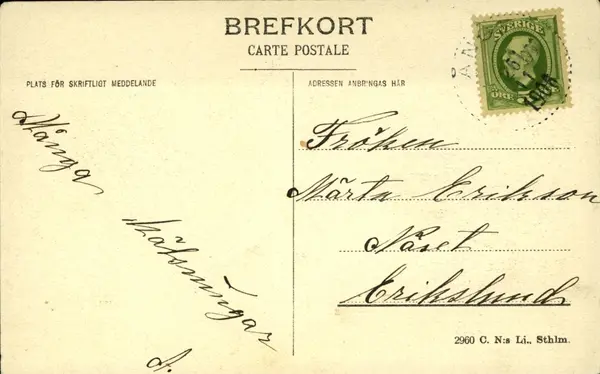 BREFKORT
CARTE POSTALE
PLATS FÖR SKRIFTLIGT MEDDELANDE
ADRESSEN ANBRINGAS HÄR
SVERIGE
ÖRE
1906
Många
Hälsningar
A.
Fröken
Märta Erikson
Näset
Erikslund
2960 C. N:s Lj., Sthlm.